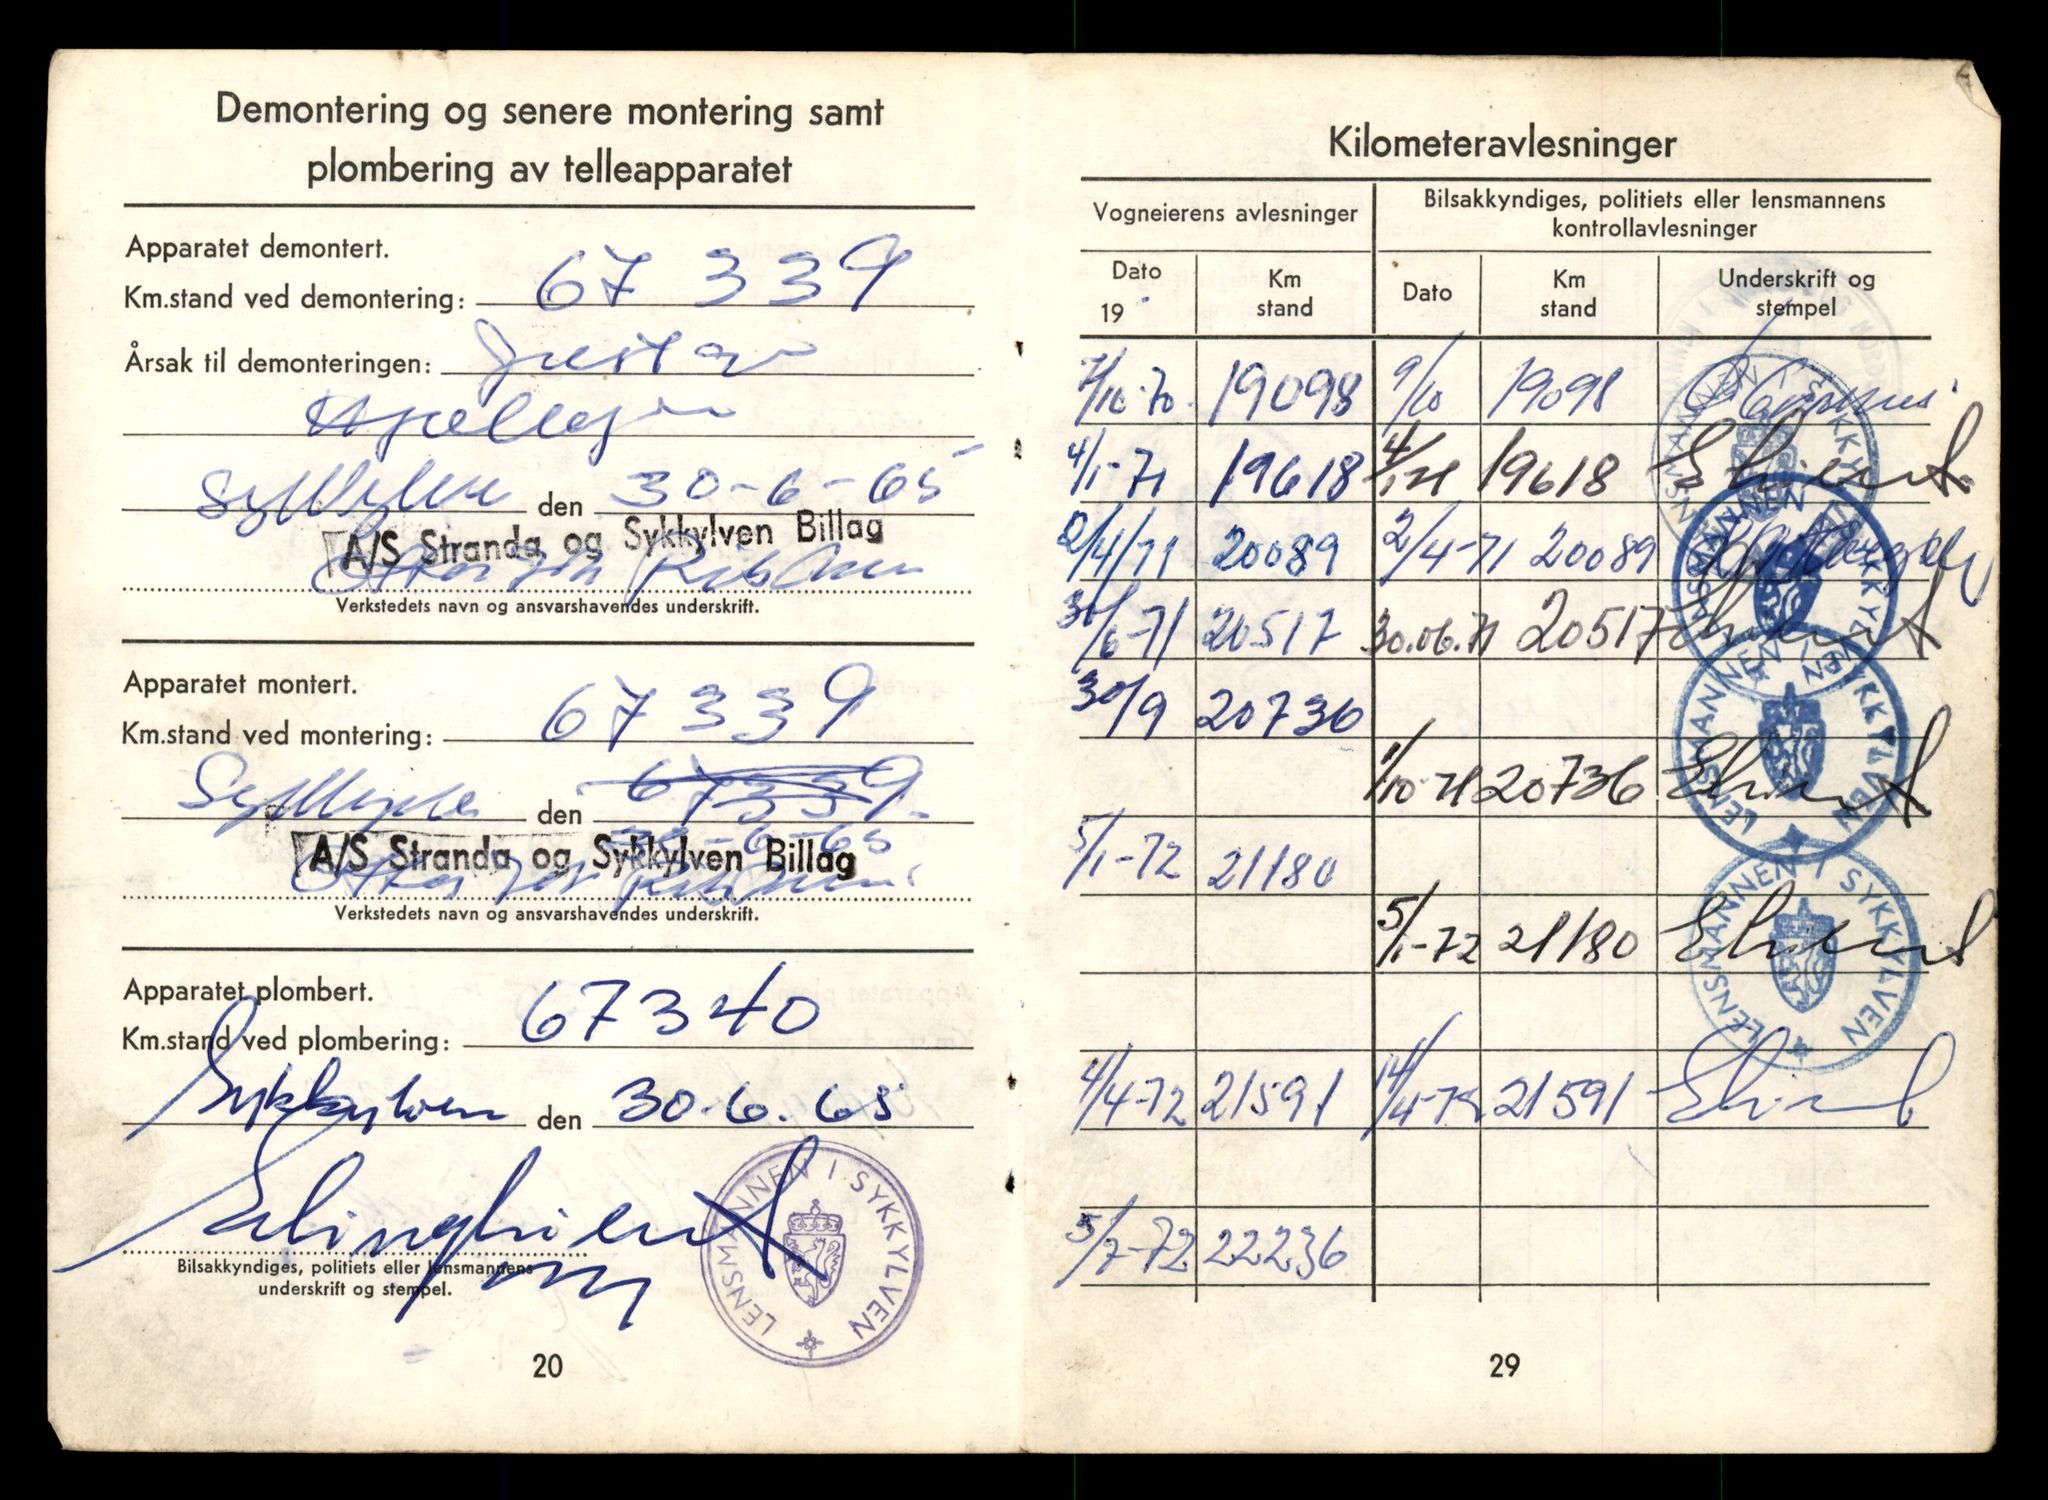 Demontering og senere montering samt
plombering av telleapparatet
Apparatet demontert.
Km.stand ved demontering: 67 339
Årsak til demonteringen:
den 30-6-65
A/S Stranda og Sykkylven Billag
Verkstedets navn og ansvarshavendes underskrift.
Apparatet montert.
Km.stand ved montering: 67 339
den 67339
30-6-65
A/S Stranda og Sykkylven Billag
Verkstedets navn og ansvarshavendes underskrift.
Apparatet plombert.
Km.stand ved plombering: 67340
Sykkylven den 30.6.65
LENSMANNEN I SYKKYLVEN
Bilsakkyndiges, politiets eller lensmannens
underskrift og stempel.
20
Kilometeravlesninger
Vogneierens avlesninger Bilsakkyndiges, politiets eller lensmannens
kontrollavlesninger
Dato
19
Km
stand
Dato
Km
stand
Underskrift og
stempel
7/10-70 19098 9/10 19098
4/1-71 19618 4/1-71 19618
2/4/71 20089 2/4-71 20089
30/6-71 20517 30.06.71 20517
30/9 20736
1/10-71 20736
5/1-72 21180
5/1-72 21180
4/4-72 21591 14/4-72 21591
5/7-72 22236
LENSMANNEN I SYKKYLVEN
LENSMANNEN I SYKKYLVEN
LENSMANNEN I SYKKYLVEN
LENSMANNEN I SYKKYLVEN
29